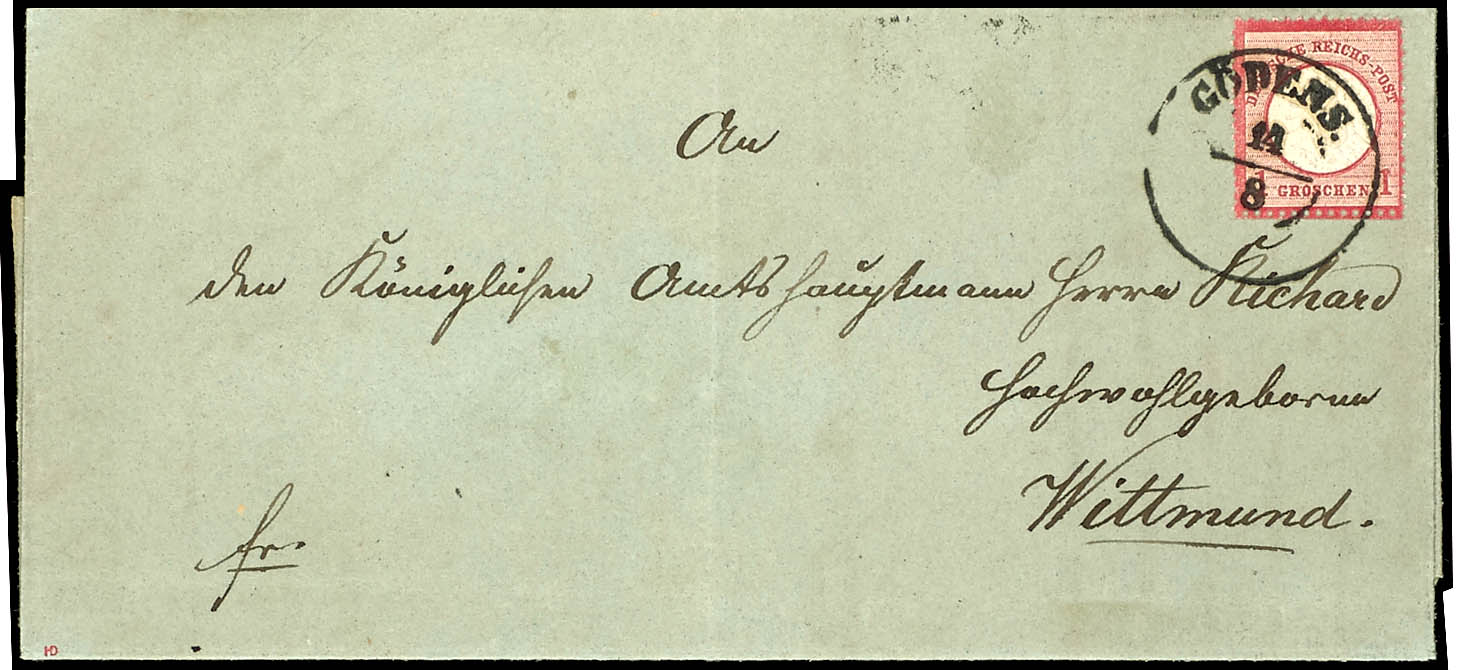 DEUTSCHE REICHS-POST
1 GROSCHEN 1
GÖDENS.
14
8
An
den Königlichen Amtshauptmann Herrn Richard
Hochwohlgeboren
Wittmund.
fr.
HD